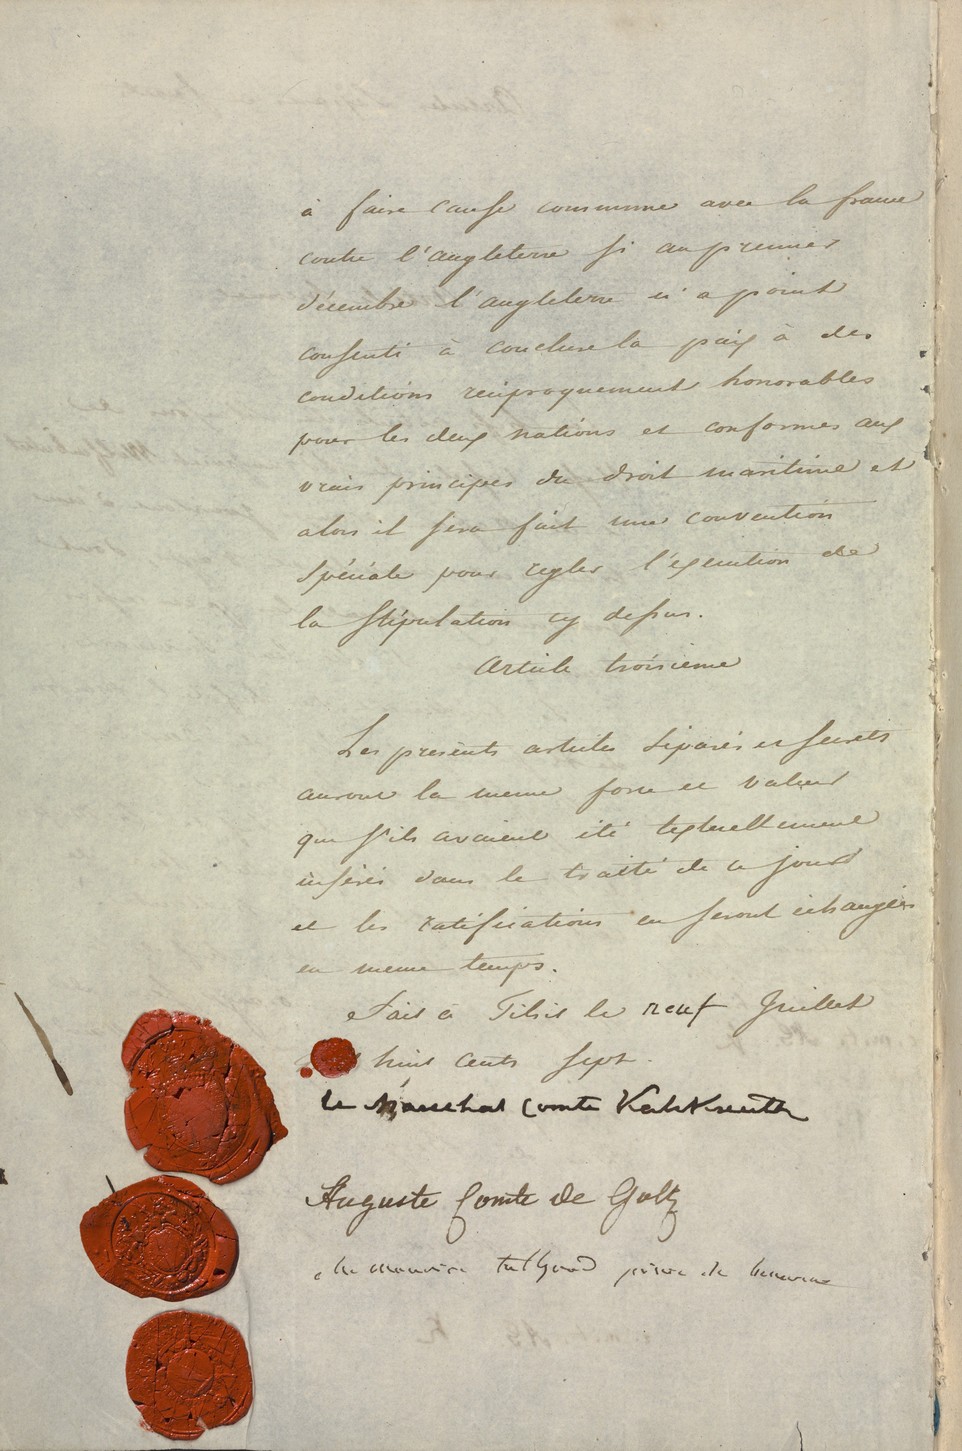 à faire cause commune avec la france
contre l'angleterre si au premier
décembre l'angleterre n'a point
consenti à conclure la paix à des
conditions réciproquement honorables
pour les deux nations et conformes aux
vrais principes du droit maritime et
alors il sera fait une convention
spéciale pour regler l'execution de
la stipulation cy dessus.
Article troisieme
Les présents articles séparés et secrets
auront la meme force et valeur
que s'ils avaient été textuellement
insérés dans le traité de ce jour
et les ratifications en seront échangées
en meme temps.
Fait à Tilsit le neuf Juillet
huit cents sept.
le Maréchal comte Kalkreuth
Auguste Comte de Goltz
ch. maurice talleyrand prince de benevent